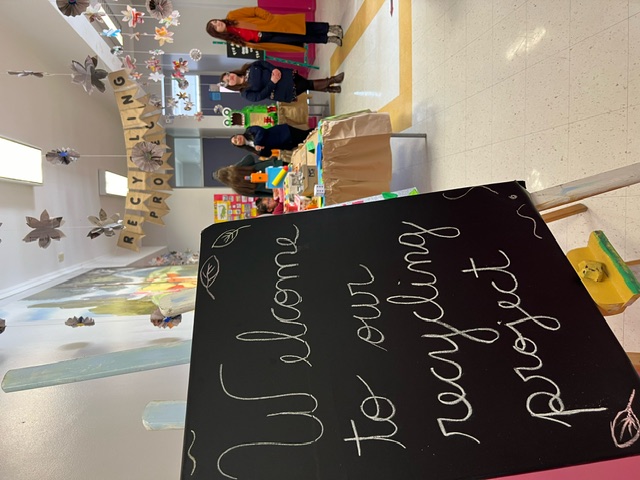 RECYCLING
PROJECT
Welcome
to our
recycling
project